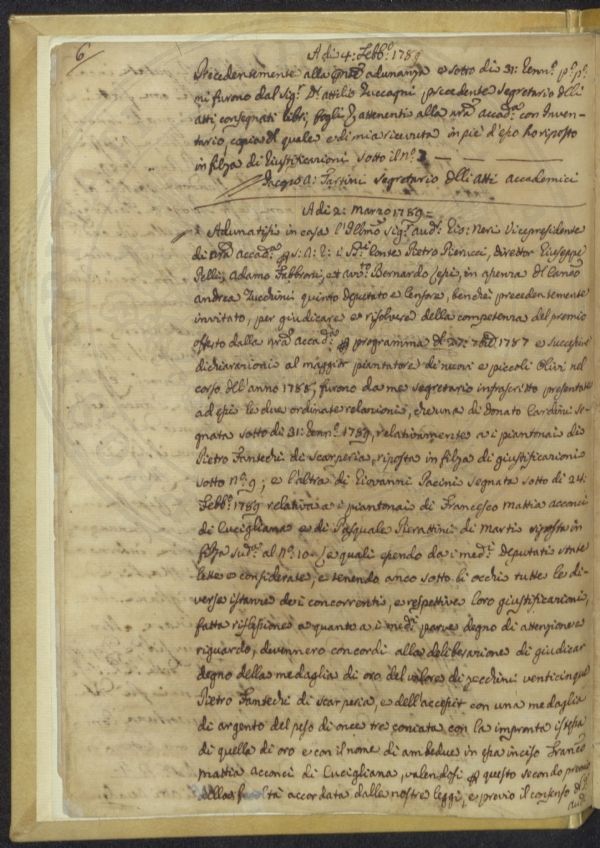 6
A di 4: Febb.º 1789
Precedentemente alla adunanza e sotto di 31: Genn.º p.º p.º
mi furono dal Sig.r D.r Attilio Zuccagni precedente Segretario delli
atti consegnati libri, fogli attenenti alla nra accad.a con Inven-
tario, copia del quale e di mia ricevuta in piè d'esso ho riposto
in filza di Giustificazioni sotto il n.º
Jacopo A: Tartini Segretario delli atti accademici
A di 2: Marzo 1789=
Adunatisi in casa l'Illmo Sig.r aud.r Gio: Neri Vicepresidente
di nra accad.a i Sri Conte Pietro Pierucci, Direttor Giuseppe
Pelli, Adamo Fabbroni, et avv.º Bernardo Lessi, in assenza del
andrea Zucchini quinto deputato e Censore, benchè precedentemente
invitato, per giudicare e risolvere della competenza del premio
offerto dalla nra accad.a programma del 27: 7bre 1787 e successive
dichiarazioni al maggior piantatore di nuovi e piccoli Olivi nel
corso dell'anno 1788, furono da me segretario infrascritto presentate
ad essi le due ordinate relazioni, che una di Donato Cardini se-
gnata sotto di 31: Genn.º 1789, relativamente a i piantonai di
Pietro Fantechi di Scarperia, riposta in filza di giustificazioni
sotto n.º 9; e l'altra di Giovanni Pacini segnata sotto di 24:
Febb.º 1789 relativa a i piantonai di Francesco Mattia acconci
di Lucigliana e di Pasquale Pierattini di Marti riposta in
filza sud.a al n.º 10 e quali essendo da i med.i Deputati state
lette e considerate, e tenendo anco sotto li occhi tutte le di-
verse istanze de i concorrenti, e respettive loro giustificazioni,
fatta riflessione a quanto a i med.i parve degno di attenzione e
riguardo, devennero concordi alla deliberazione di giudicar
degno della medaglia di oro del valore di zecchini venticinque
Pietro Fantechi di Scarperia, e dell'accessit con una medaglia
di argento del peso di once tre coniata con la impronta istessa
di quella di oro e con il nome di ambedue in essa inciso Franco
Mattia acconci di Lucigliana, valendosi questo secondo premio
della facoltà accordata dalle nostre leggi, e previo il consenso del